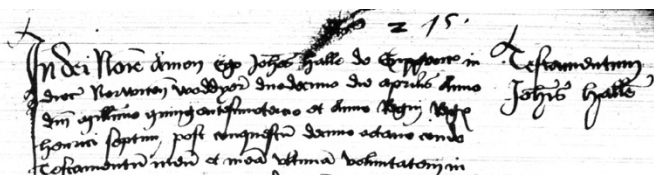 2 15.
In dei Noīe Amen Ego Joħes Halle de in
dioc Norwicen duodecimo die aprilis Anno
dm̄ millimo quingentesimotercio et Anno Regni Reg
henrici septimi post conquestū decimo octavo condo
Testamentū meū et meā ultimā voluntatem in
Testamentum
Joħis Halle